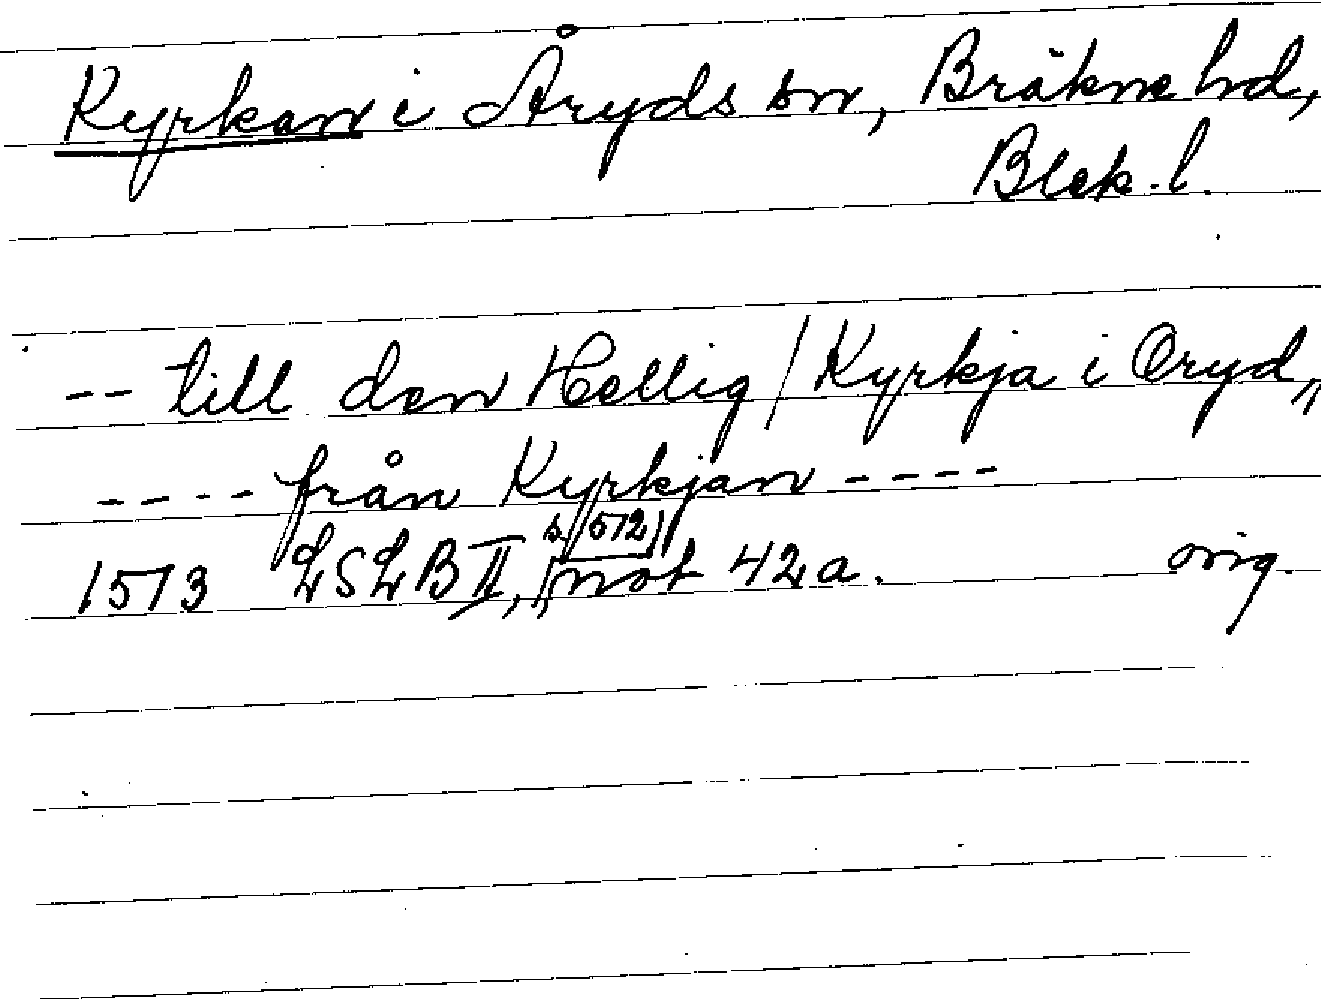 Kyrkan i Åryds sn, Bräkne hd,
Blek. l.
-- till den Hellig / Kyrkja i Oryd,,
---- från Kyrkjan ----
s. 572
1573 LSLB II, not 42a. orig.